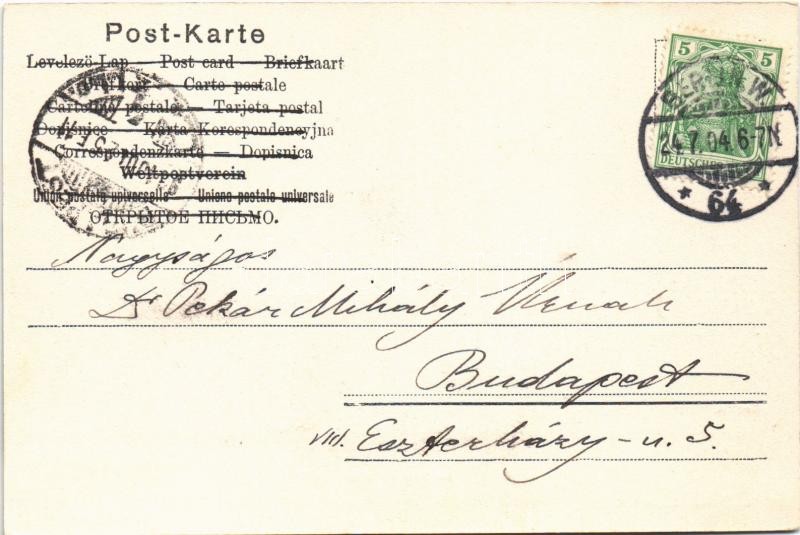 Post-Karte
Levelezö-Lap — Post card — Briefkaart
Carte postale
Cartolina postale — Tarjeta postal
Dopisnice — Karta Korespondencyjna
Correspondenzkarte — Dopisnica
Weltpostverein
Union postale universelle — Unione postale universale
ОТКРЫТОЕ ПИСЬМО.
5 5
DEUTSCHES
BERLIN W
24.7.04.6-7N.
* 64 *
Nagyságos
Dr Pekár Mihály Úrnak
Budapest
VIII. Eszterházy-u. 5.